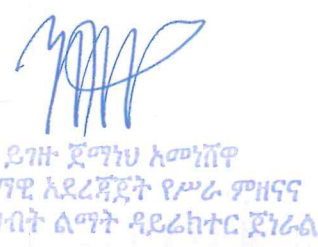 ይገዙ ጀማነህ አመነሸዋ
ማዊ አደረጃጀት የሥራ ምዘናና
ብት ልማት ዳይሬክተር ጀነራል